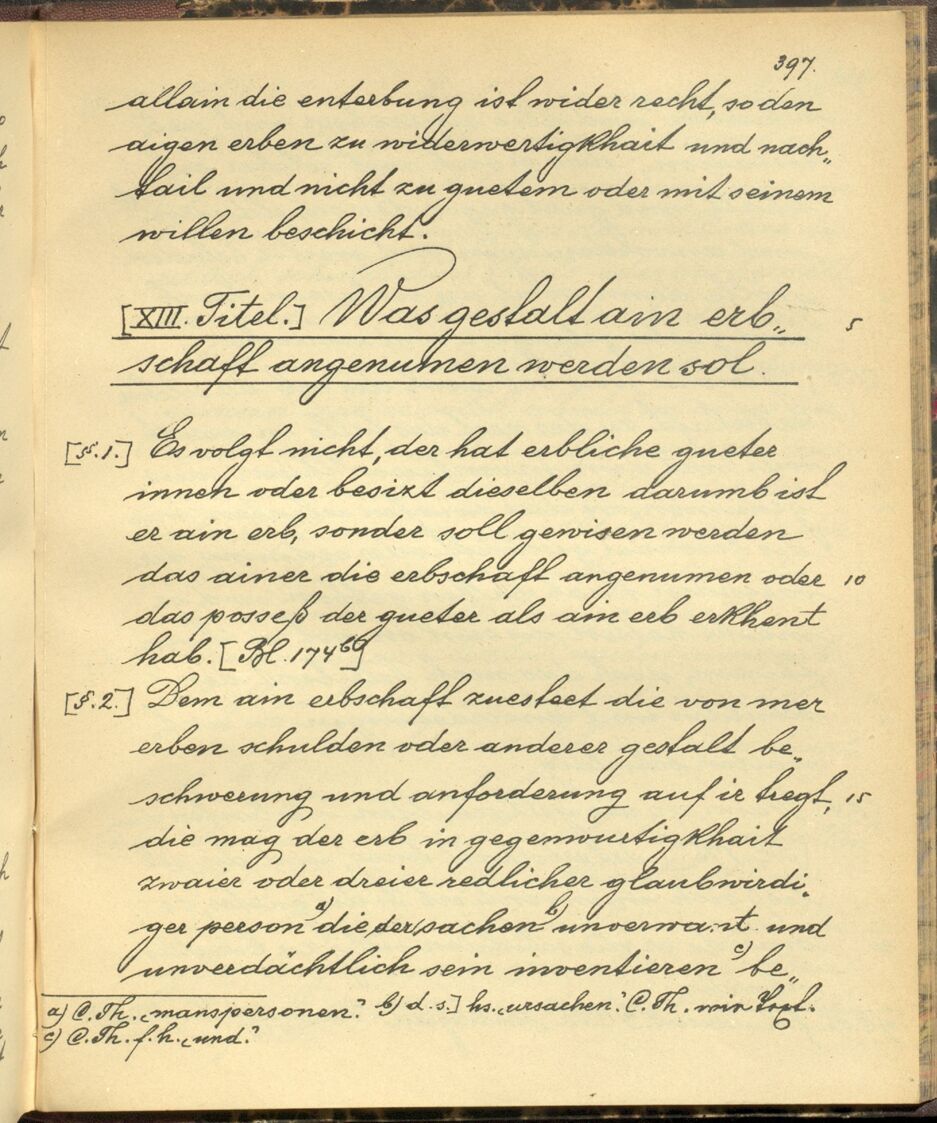 397.
allain die enterbung ist wider recht, so den
aigen erben zu widerwertigkhait und nach„
tail und nicht zu guetem oder mit seinem
willen beschicht.
[XIII. Titel.] Was gestalt ain erb„ 5
schaft angenumen werden sol.
[§.1.] Es volgt nicht, der hat erbliche gueter
innen oder besizt dieselben darumb ist
er ain erb, sonder soll gewisen werden
das ainer die erbschaft angenumen oder 10
das posseß der gueter als ain erb erkhent
hab. [Bl. 174b]
[§.2.] Dem ain erbschaft zuesteet die von mer
erben schulden oder anderer gestalt be„
schwerung und anforderung auf ir tregt, 15
die mag der erb in gegenwurtigkhait
zwaier oder dreier redlicher glaubwirdi„
ger person a) die der sachen b) unverwant und
unverdächtlich sein inventieren c) be„
a) C. Th. „manspersonen." b) d. s.] hs. „ursachen". C. Th. wir Text.
c) C. Th. f. h. „und."